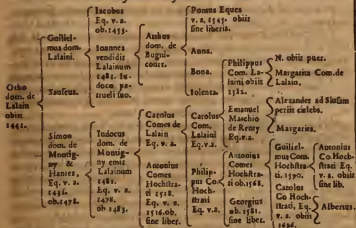 Otho
dom. de
Lalain
obiit
1441.
Guiliel-
mus dom.
Lalaini.
Sanseus.
Simon
dom. de
Montig-
ny &
Hantes,
Eq. v. a.
1431.
ob. 1478.
Iacobus
Eq. v. a.
ob. 1453.
Ioannes
vendidit
Lalainum
1481. Iu-
doco pa-
trueli suo.
Iudocus
dom. de
Montig-
ny emit
Lalainum
1481.
Eq. v. a.
1478.
ob 1483.
Arthus
dom. de
Bugni-
court.
Carolus
Comes de
Lalain
Eq. v. a.
Antonius
Comes
Hochstra-
ti 1518.
Eq. v. a.
1516. ob.
sine liber.
Pontus Eques
v. a, 1545. obiit
sine liberis.
Anna.
Bona.
Iolenta.
Carolus
Com.
Lalaini
Eq. v. a.
Philip-
pus Co.
Hochstra-
Eq. v. a.
Philippus
Com. La-
laini obiit
1582.
Emanuel
Marchio
de Renty
Eq. v. a.
Antonius
Comes
Hochstra-
ti ob. 1568.
Georgius
ob. 1581.
sine liber.
N. obiit puer.
Margarita Com. de
Lalain,
Alexander ad Siosam
periit cælebs.
Margarita.
Guiliel-
mus Com.
Hochstra-
ti. 1590.
Carolus
Co Hoch-
strati, Eq.
v. a. obiit
1626.
Antonius
Co Hoch-
strati Eq.
v. a. obiit
sine lib.
Albertus.